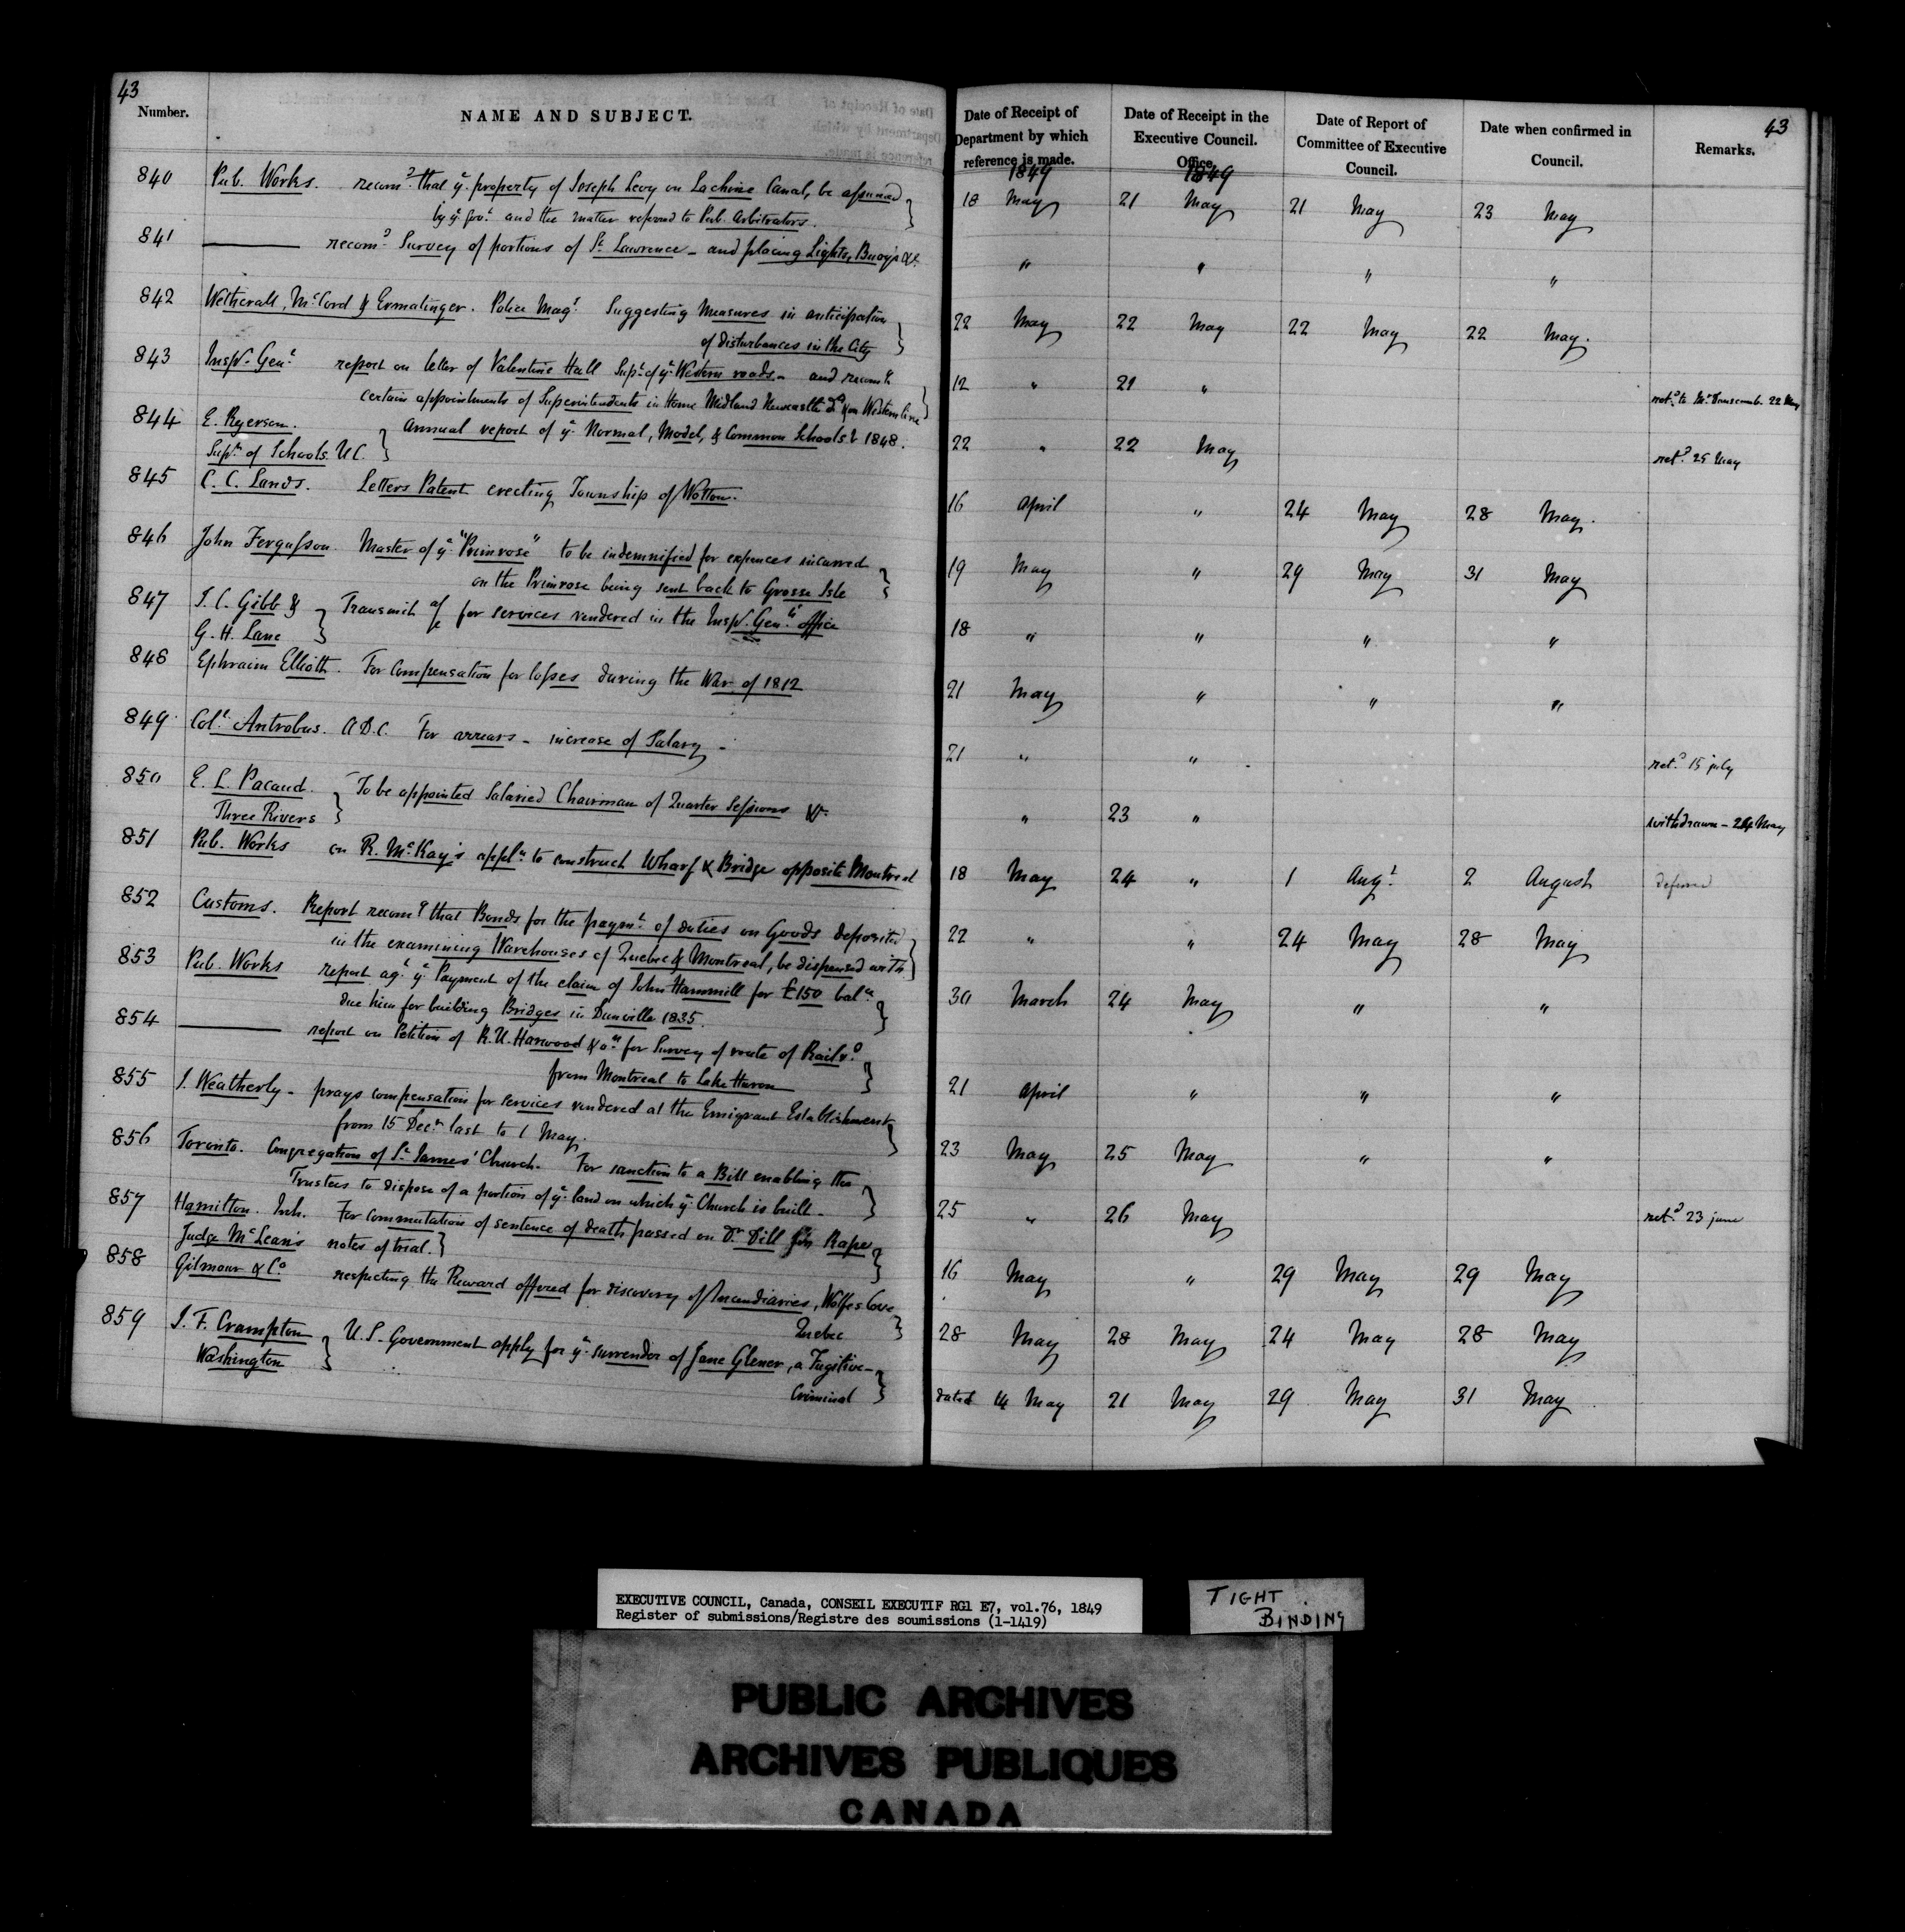 43
Number.
NAME AND SUBJECT.
Date of Receipt of Department by which reference is made.
Date of Receipt in the Executive Council. Office.
Date of Report of Committee of Executive Council.
Date when confirmed in Council.
Remarks.
43
1849
1849
840 Pub. Works. recomd that ye property of Joseph Levy on Lachine Canal, be assumed
by ye govt and the matter referred to Pub. Arbitrators.
18 May 21 May 21 May 23 May
841 ——— recomd Survey of portions of St Lawrence – and placing Lights, Buoys &c
" " " "
842 Wetherall, McCord & Ermatinger. Police Magt Suggesting Measures in anticipation
of disturbances in the City
22 May 22 May 22 May 22 May.
843 Inspr Genl report on letter of Valentine Hall Supt of ye Western roads – and recomg
certain appointments of Superintendents in Home Midland Newcastle & on Western line
12 " 21 " retd to Mr Dunscomb. 22 May
844 E. Ryerson. Annual report of ye Normal, Model, & Common Schools 1848.
Supt of Schools. U.C.
22 " 22 May retd 25 May
845 C. C. Lands. Letters Patent erecting Township of Wotton.
16 April " 24 May 28 May.
846 John Fergusson. Master of ye "Primrose" to be indemnified for expences incurred
on the Primrose being sent back to Grosse Isle
19 May " 29 May 31 May
847 J. C. Gibb & Transmit a/c for services rendered in the Inspr Genls office
G. H. Lane
18 " " " "
848 Ephraim Elliott. For compensation for losses during the War of 1812
21 May " " "
849 Coll Antrobus. A.D.C. For arrears – increase of Salary –
21 " " retd 15 july
850 E. L. Pacaud. To be appointed Salaried Chairman of Quarter Sessions &c
Three Rivers
" 23 " withdrawn – 24 May
851 Pub. Works on R. McKay's appln to construct Wharf & Bridge opposite Montreal
18 May 24 " 1 Augt 2 August deferred
852 Customs. Report recomg that Bonds for the paymt of duties on Goods deposited
in the examining Warehouses of Quebec & Montreal, be dispensed with
22 " " 24 May 28 May
853 Pub. Works report agt ye Payment of the claim of John Hammill for £150 balce
due him for building Bridges in Dunville 1835.
30 March 24 May " "
854 ——— report on Petition of R. U. Harwood & ors for Survey of route of Railrd
from Montreal to Lake Huron
21 April " " "
855 J. Weatherly – prays compensation for services rendered at the Emigrant Establishment
from 15 Decr last to 1 May.
23 May 25 May " "
856 Toronto. Congregation of St James' Church. For sanction to a Bill enabling the
Trustees to dispose of a portion of ye land on which ye Church is built –
25 " 26 May retd 23 june
857 Hamilton. Inh. For commutation of sentence of death passed on Dr Dill for Rape
Judge McLean's notes of trial.
16 May " 29 May 29 May
858 Gilmour & Co respecting the Reward offered for discovery of Incendiaries, Wolfes Cove
Quebec
28 May 28 May 24 May 28 May
859 J. F. Crampton U.S. Government apply for ye surrender of Jane Glener, a Fugitive
Washington Criminal
dated 14 May 21 May 29 May 31 May
EXECUTIVE COUNCIL, Canada, CONSEIL EXECUTIF RG1 E7, vol.76, 1849
Register of submissions/Registre des soumissions (1-1419)
TIGHT BINDING
PUBLIC ARCHIVES
ARCHIVES PUBLIQUES
CANADA